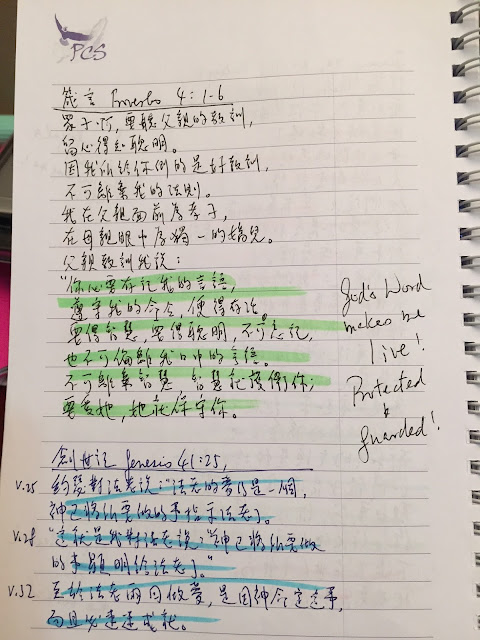 PCS
箴言 Proverbs 4:1-6
眾子啊,要聽父親的教訓,
留心得知聰明。
因我所給你們的是好教訓,
不可離棄我的法則。
我在父親面前為孝子,
在母親眼中為獨一的嬌兒。
父親教訓我說:
“你心要存記我的言語,
遵守我的命令,便得存活。
要得智慧,要得聰明,不可忘記,
也不可偏離我口中的言語。
不可離棄智慧 智慧就護衛你;
要愛她,她就保守你。
God's Word
makes me
live!
Protected
&
guarded!
創世記 Genesis 41:25,
v.25 約瑟對法老說:“法老的夢乃是一個,
神已將所要做的事指示法老了。
v.28 “這就是我對法老說,“神已將所要做
的事顯明給法老了。”
v.32 至於法老兩回做夢,是因神命定這事,
而且必速速成就。